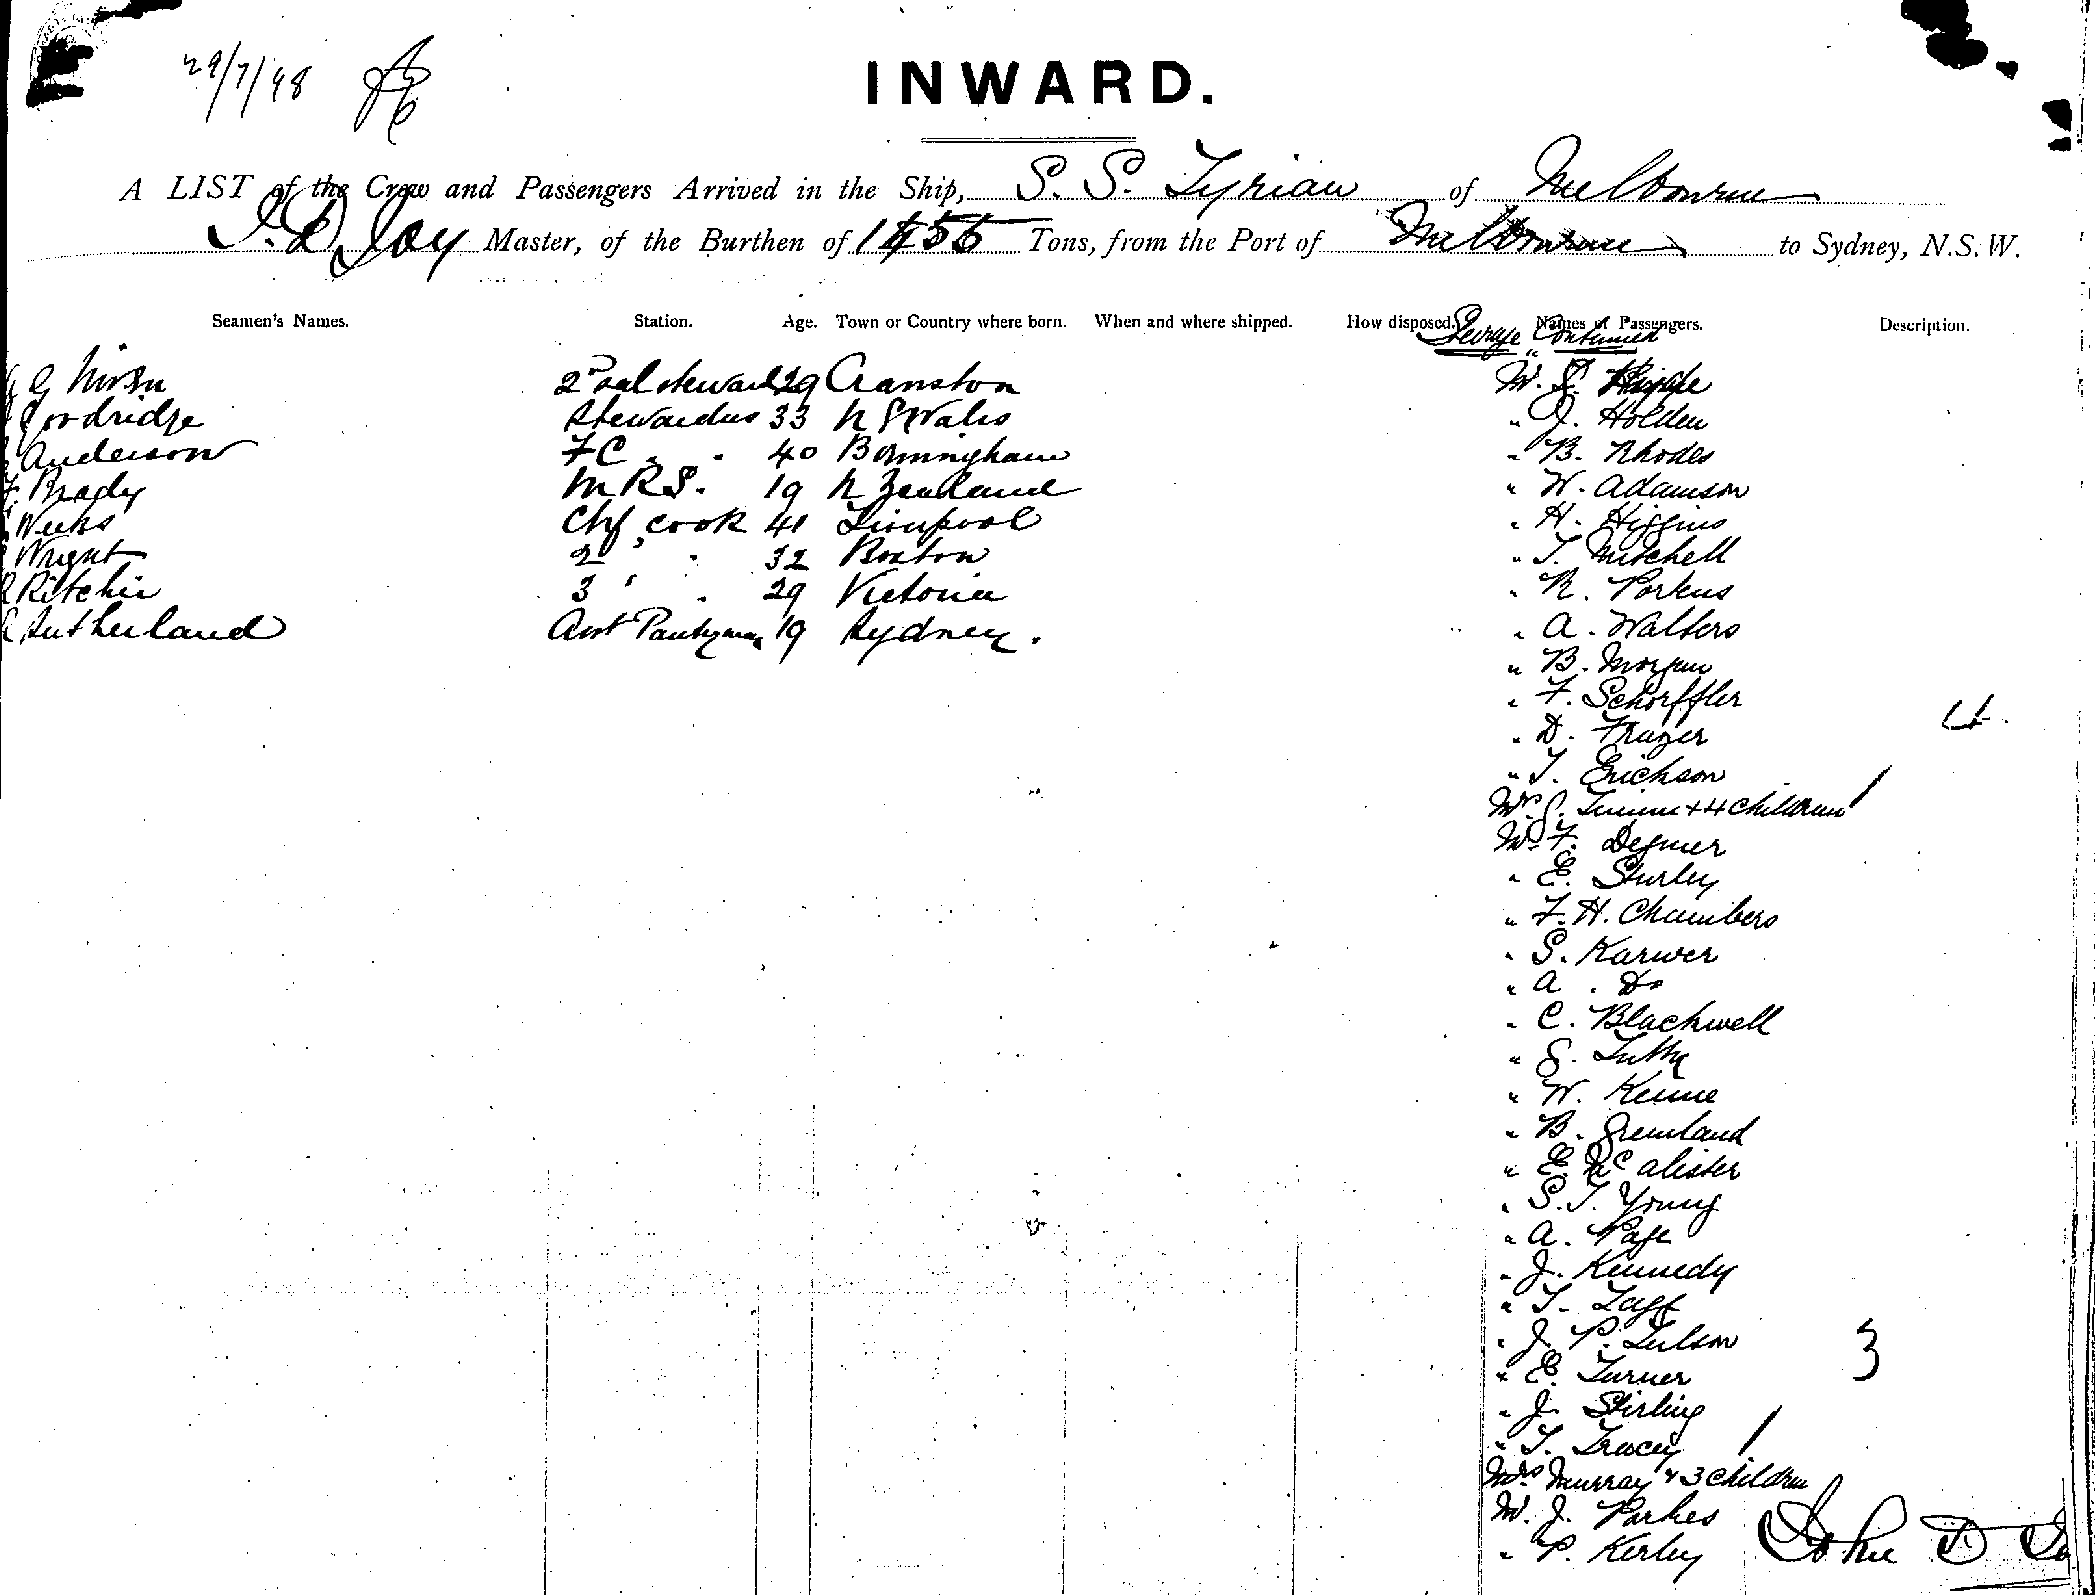 29/7/98
INWARD.
A LIST of the Crew and Passengers Arrived in the Ship, S. S. Tyrian of Melbourne
J. D Joy Master, of the Burthen of 1455 Tons, from the Port of Melbourne to Sydney, N.S.W.
Seamen's Names. Station. Age. Town or Country where born. When and where shipped. How disposed. Names of Passengers. Description.
Steerage Continued
G 2nd Sal steward 29 Cranston
Goodridge Stewardess 33 N S Wales
Anderson F C " " 40 Birmingham
Brady M R S. 19 N Zealand
Weeks Chf cook 41 Liverpool
Wright 2 " " 32 Boston
Ritchie 3 " " 29 Victoria
Sutherland Asst Pantryman 19 Sydney.
M.
" J. Holden
" B. Rhodes
" W. Adamson
" H. Higgins
" T. Mitchell
" R. Porkus
" A. Walters
" B. Morgan
" F. Schorffler
4.
" D. Frazer
" T. Erickson
Mrs + 4 children
Mr F. Degmer
" E. Sturley
" F. H. Chambers
" S. Karwer
" A. Do
" C. Blackwell
" W. Keune
" B. Greenland
" E. McAlister
" S. T. Young
" A. Page
" J. Kennedy
" T. Taff
" J. P. Tulson
3
" E. Turner
" J. Stirling
" T. Tracey
Mrs Murray + 3 children
M. J. Parkes
" P. Kerley
John D Jo